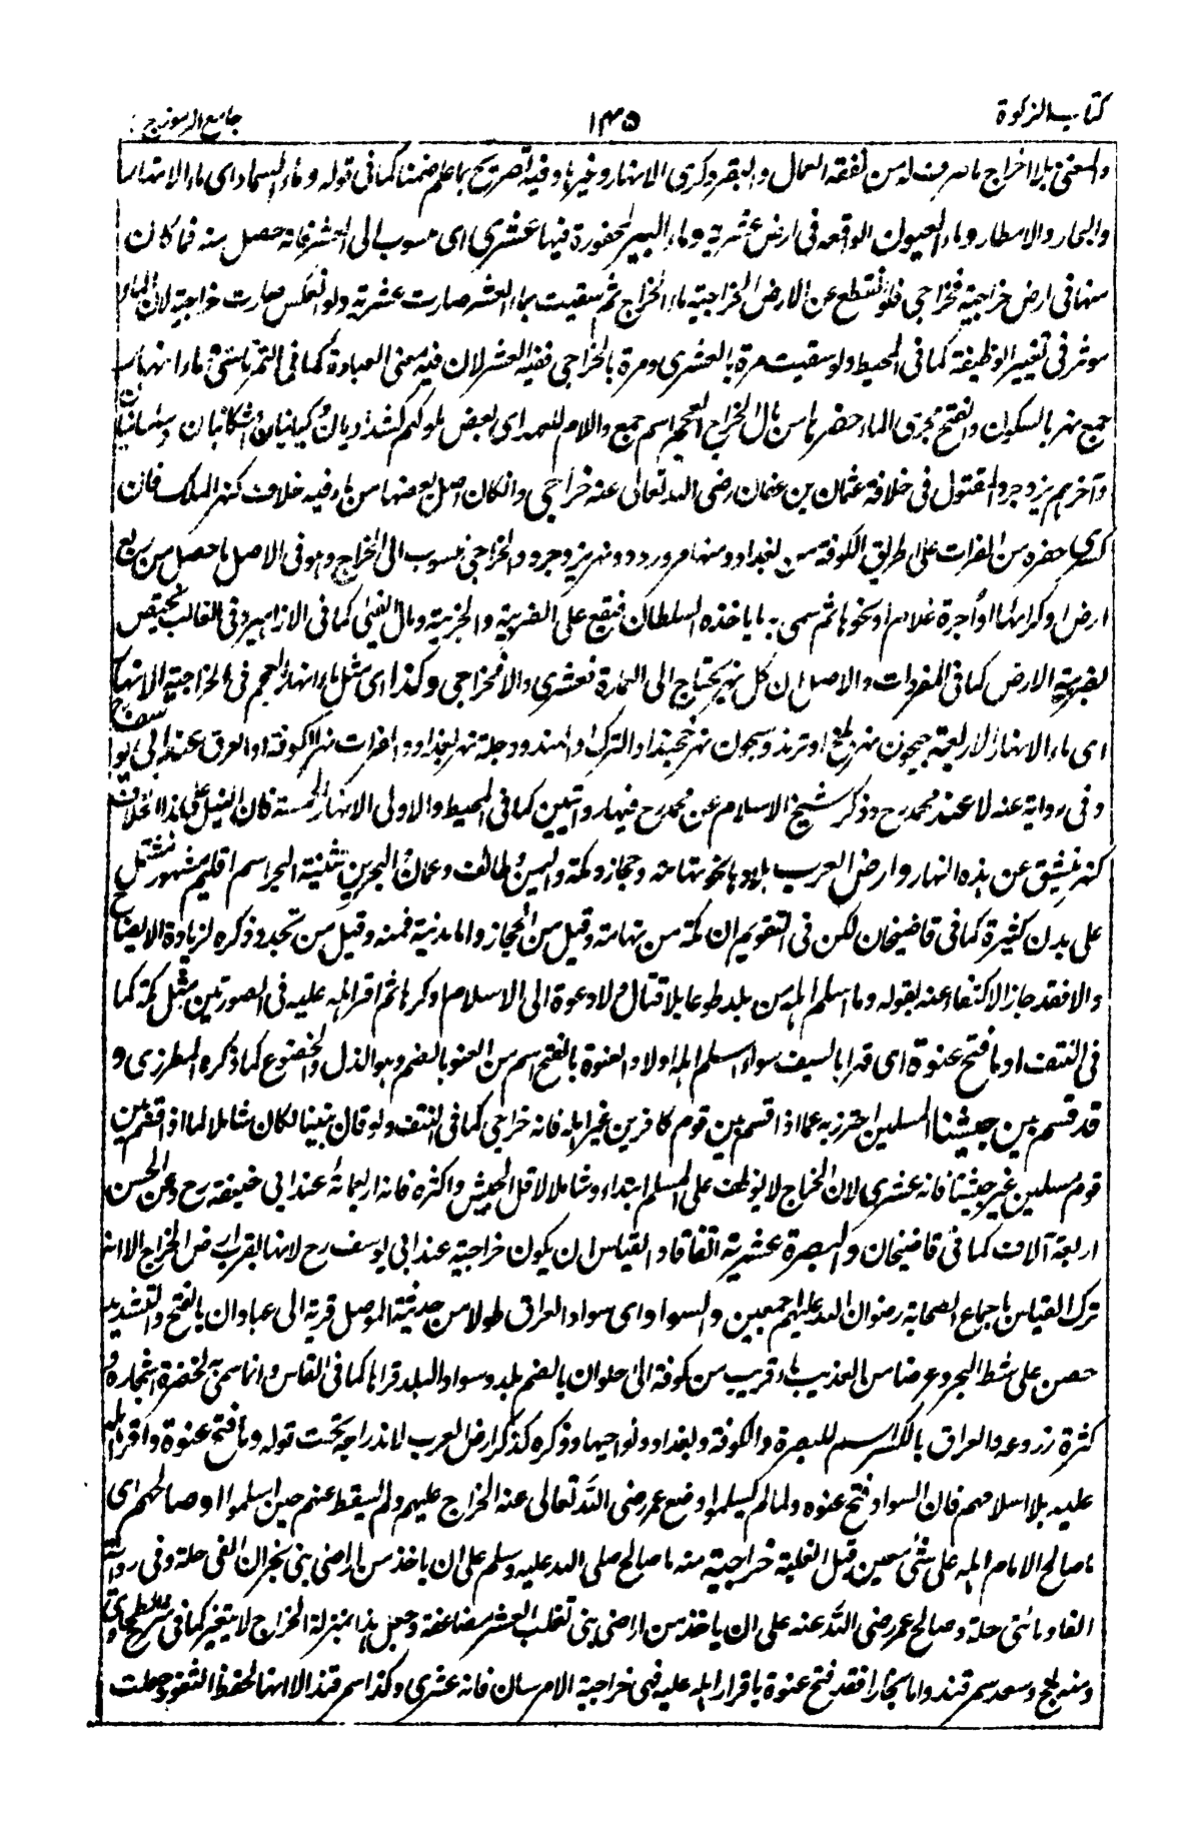 كتاب الزكوة
١٣٥
جامع الرموز ج
والمعنى بلا اخراج ما صرف له من نفقة العمال والبقر وكرى الانهار وغيرها وفيه تصريح بما علم ضمنا كما في قوله وماء السماء اى ماء
والبحار والامطار وماء العيون الواقعة في ارض عشرية وماء البير المحفورة فيها عشرى اى منسوب الى العشر فانه حصل منه فما كان
منها في ارض خراجية فخراجى فلو انقطع عن الارض الخراجية ماء الخراج ثم سقيت بماء العشر صارت عشرية ولو انعكس صارت خراجية لان الماء
موثر في تغيير الوظيفة كما في المحيط ولو سقيت مرة بالعشرى ومرة بالخراجى ففيه العشر لان فيه معنى العبادة كما في التمرتاشى وماء انهار
جمع نهر بالسكون والفتح مجرى الماء حفرها من مال الخراج العجم اسم جمع واللام للعهد اى لبعض ملوكهم كيانيان اشكانيان
وآخرهم يزدجرد المقتول في خلافة عثمان بن عفان رضى الله تعالى عنه خراجى وان كان اصل بعضها من ماء فيه خلاف كنهر الملك فان
كسرى حفره من الفرات على طريق الكوفة من بغداد ومنها مرورد ونهر يزدجرد والخراجى منسوب الى الخراج وهو في الاصل ما حصل من ريع
ارض او كرائها او اجرة غلام او نحوها ثم سمى به ما ياخذه السلطان فيقع على الضريبة والجزية ومال الفئ كما في الازاهير وفي الغالب يختص
لضريبة الارض كما في المفردات والاصل ان كل نهر يحتاج الى العمارة فعشرى والا فخراجى وكذا اى مثل ماء انهار العجم في الخراجية الانهار
اى ماء الانهار الاربعة جيحون نهر بلخ او ترمذ وسيحون نهر خجند او الترك او الهند ودجلة نهر بغداد وفرات نهر الكوفة او العراق عند ابى يوسف رح
وفي رواية عنه لا عند محمد رح وذكر شيخ الاسلام عن محمد رح فيها روايتين كما في المحيط والاولى الانهار الخمسة فان النيل على هذا الخلاف
كنهر ينشق عن هذه الانهار وارض العرب بلادها نحو تهامة وحجاز ومكة واليمن وطائف وعمان والبحرين تثنية البحر اسم اقليم مشهور مشتمل
على بلدان كثيرة كما في قاضيخان لكن في التقويم ان مكة من تهامة وقيل من الحجاز واما المدينة فمنه وقيل من نجد وذكره لزيادة الايضاح
والا فقد جاز الاكتفاء عنه بقوله وما اسلم اهله من بلد طوعا بلا قتال ولا دعوة الى الاسلام او كرها ثم اقر اهله عليه في الصورتين مثل مكة كما
في النتف او ما فتح عنوة اى قهرا بالسيف سواء اسلم اهله اولا والعنوة بالفتح اسم من العنو بالضم وهو الذل والخضوع كما ذكره المطرزى و
قد قسم بين جيشنا المسلمين احترز به عما اذا قسم بين قوم كافرين غير اهله فانه خراجى كما في النتف ولو قال بيننا لكان شاملا لما اذا قسم بين
قوم مسلمين غير جيشنا فانه عشرى لان الخراج لا يوظف على المسلم ابتداء وشاملا لاقل الجيش واكثره فانه اربعمائة عند ابى حنيفة رح وعن الحسن
اربعة آلاف كما في قاضيخان والبصرة عشرية اتفاقا والقياس ان يكون خراجية عند ابى يوسف رح لانها بقرب ارض الخراج الا انه
ترك القياس باجماع الصحابة رضوان الله عليهم اجمعين والسواد اى سواد العراق طولا من حديثة الموصل قرية الى عبادان بالفتح والتشديد
حصن على شط البحر وعرضا من العذيب ماء قريب من كوفة الى حلوان بالضم بلد وسواد البلد قراها كما في القاموس وانما سمى به لخضرة اشجاره و
كثرة زروعه والعراق بالكسر اسم للبصرة والكوفة وبغداد ونواحيها وذكره كذكر ارض العرب لاندراجه تحت قوله وما فتح عنوة واقر اهله
عليه بلا اسلامهم فان السواد فتح عنوة ولما لم يسلموا وضع عمر رضى الله تعالى عنه الخراج عليهم ولم يسقط عنهم حين اسلموا او صالحهم اى
ما صالح الامام اهله على شئ معين قبل الغلبة خراجية منه ما صالح صلى الله عليه وسلم على ان ياخذ من اراضى بنى نجران الفى حلة وفي رواية
الفا ومائتى حلة وصالح عمر رضى الله عنه على ان ياخذ من اراضى بنى تغلب العشر مضاعفة وجعل هذا بمنزلة الخراج لا يتغير كما في شرح الطحاوى
ومنه بلخ وسغد سمرقند واما بخارا فقد فتح عنوة باقرار اهله عليه فهى خراجية الا مرسان فانه عشرى وكذا سمرقند الا انها لحفظ الثغور جعلت